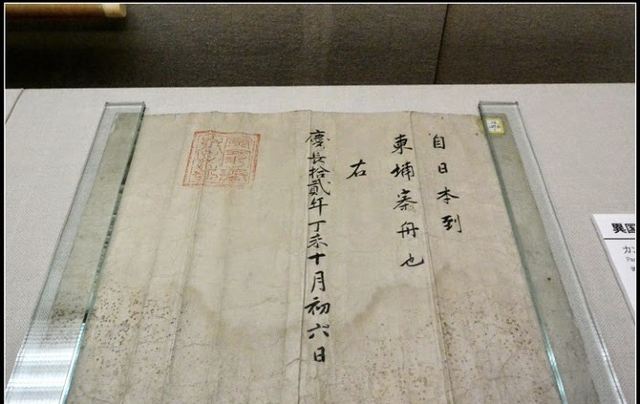 自日本到
柬埔寨舟也
右
慶長拾貳年丁未十月初六日
異国